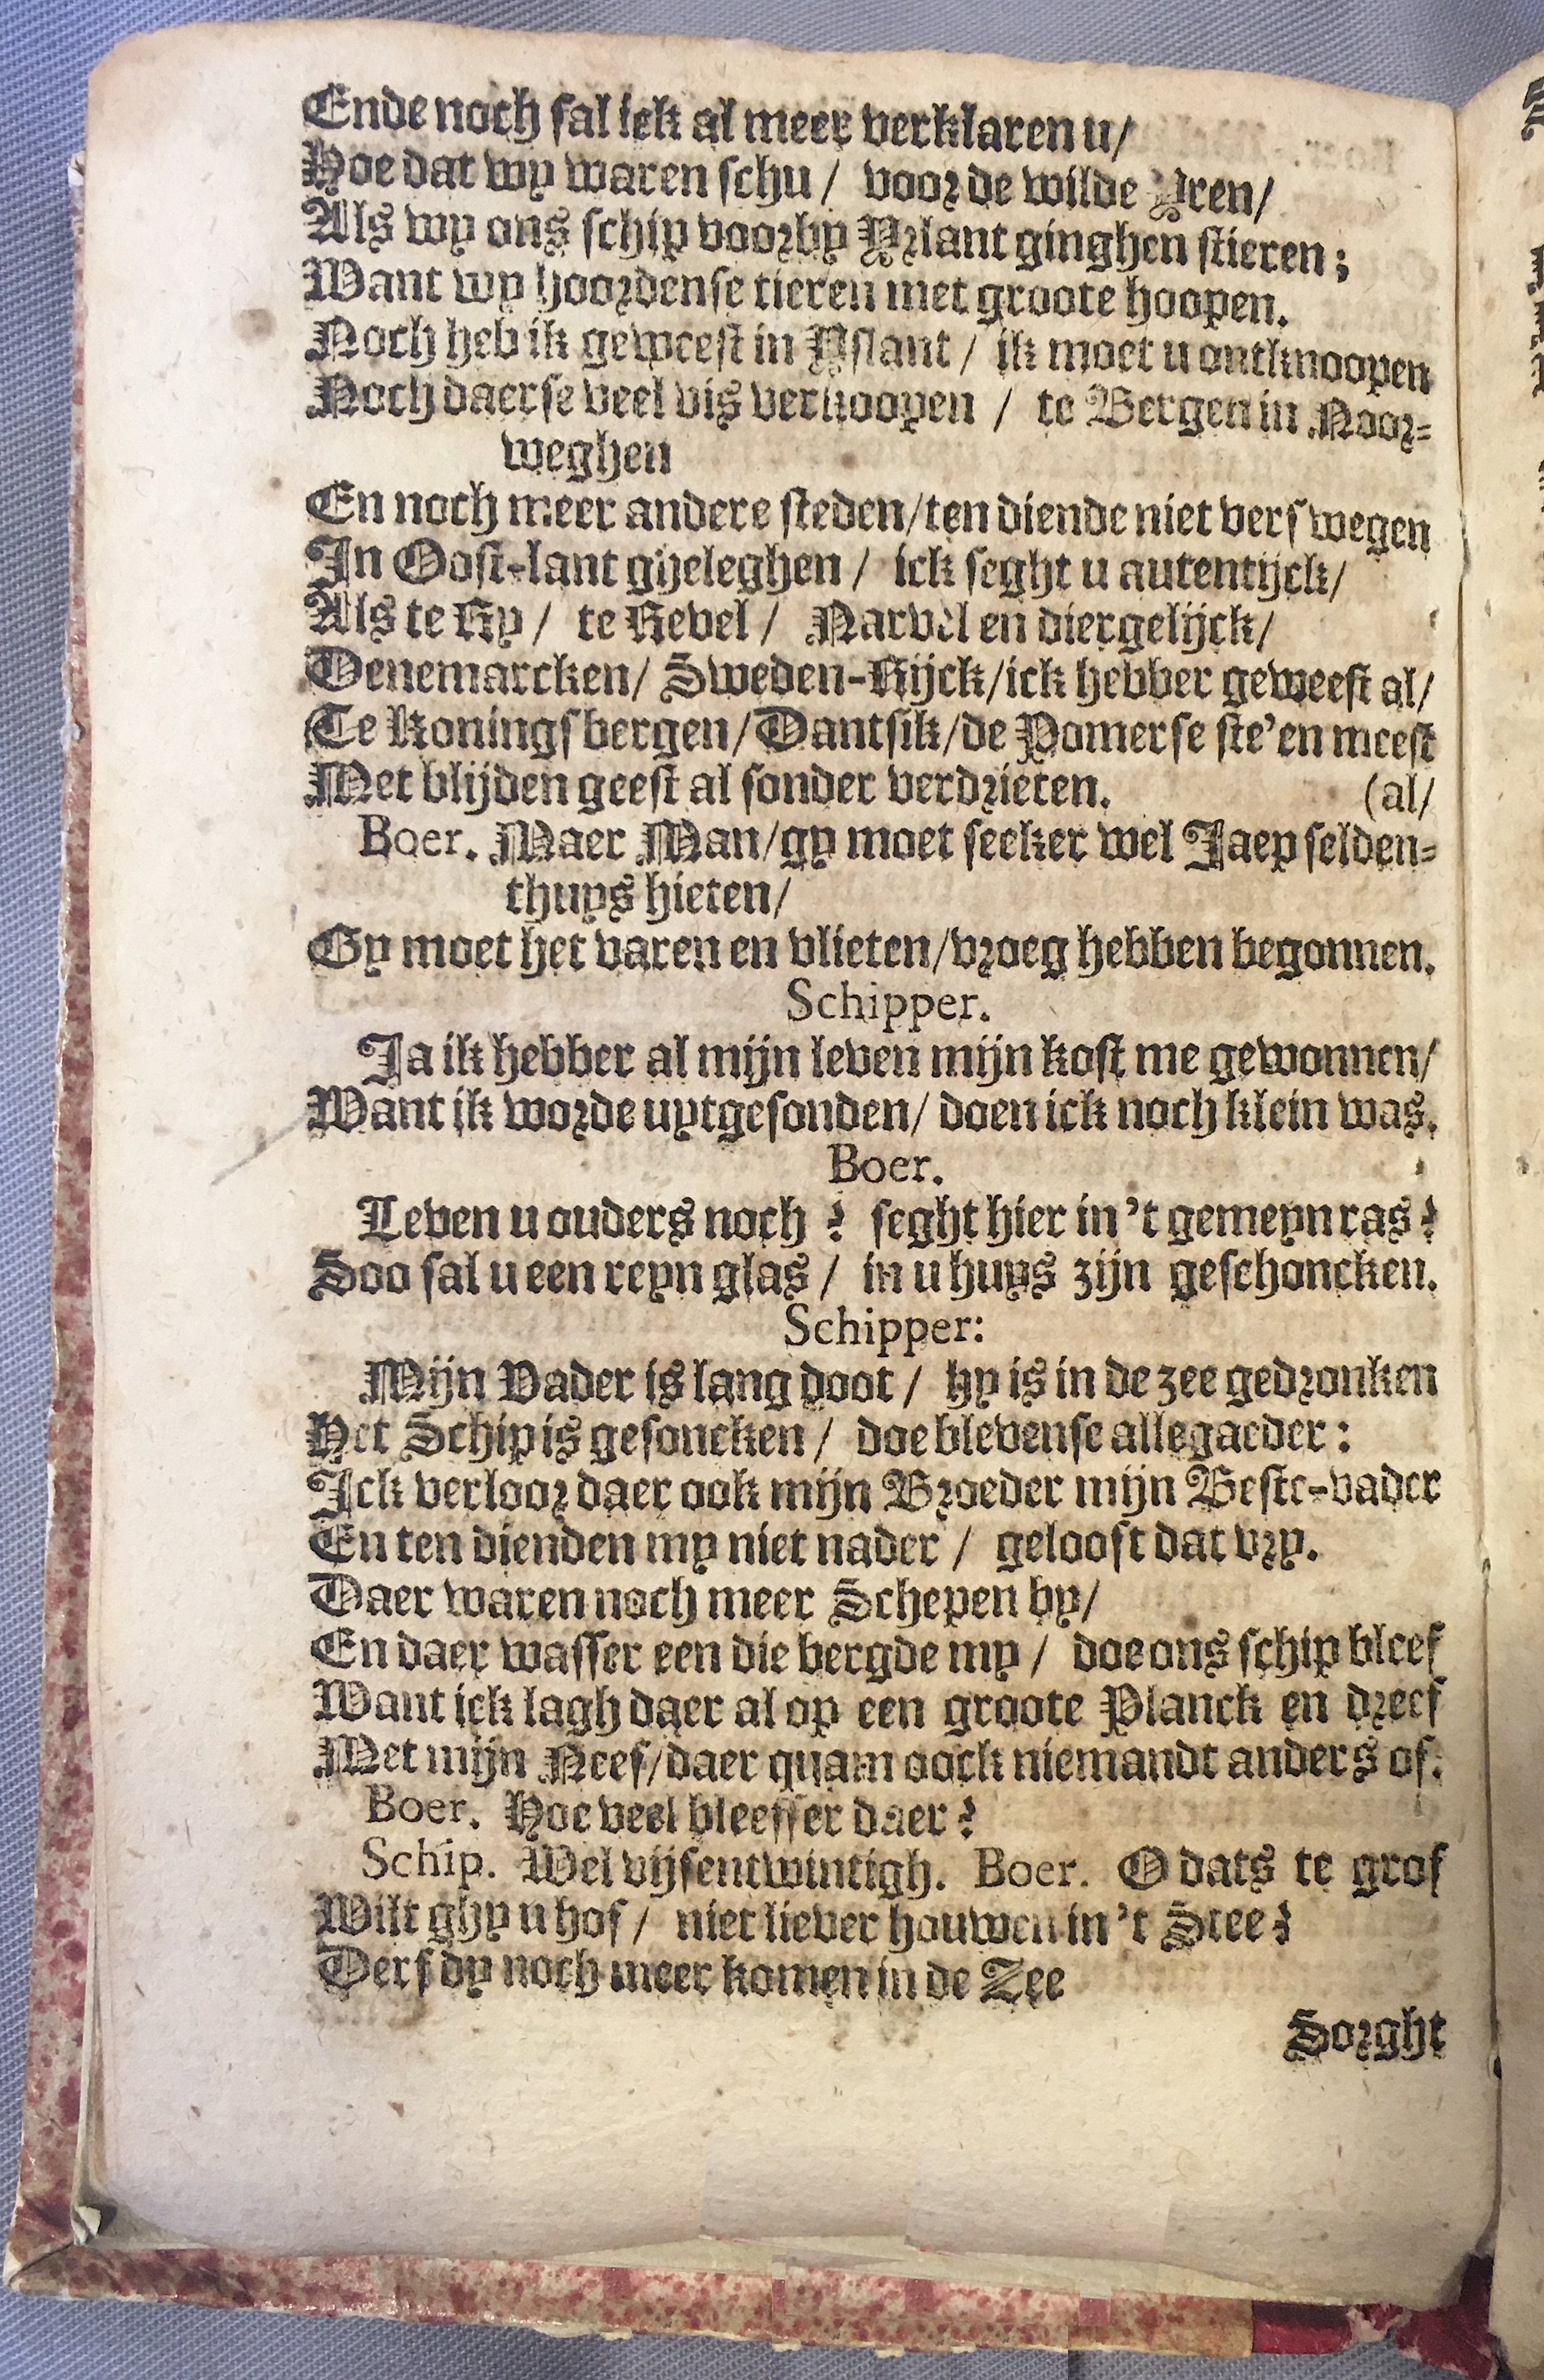 Ende noch sal ick al meer verklaren u/
Hoe dat wy waren schu / voor de wilde Yren/
Als wy ons schip voorby Yrlant ginghen stieren;
Want wy hoordense tieren met groote hoopen.
Noch heb ik geweest in Yslant / ik moet u ontknoopen
Noch daerse veel vis verkoopen / te Bergen in Noor-
weghen
En noch meer andere steden/ten diende niet verswegen
In Oost-lant gheleghen / ick seght u autentijck/
Als te Ry / te Revel / Narvel en diergelijck/
Denemarcken/ Sweden-Rijck/ick hebber geweest al/
Te Koningsbergen/Dantsik/de Pomerse ste'en meest
Met blijden geest al sonder verdrieten. (al/
Boer. Maer Man/gy moet seeker wel Jaep selden-
thuys hieten/
Gy moet het varen en vlieten/vroeg hebben begonnen.
Schipper.
Ja ik hebber al mijn leven mijn kost me gewonnen/
Want ik worde uytgesonden/ doen ick noch klein was.
Boer.
Leven u ouders noch ? seght hier in 't gemeyn ras?
Soo sal u een reyn glas / in u huys zijn geschoncken.
Schipper:
Mijn Vader is lang doot / hy is in de zee gedronken
Het Schip is gesoncken / doe blevense allegaeder:
Ick verloor daer ook mijn Broeder mijn Beste-vader
En ten dienden my niet nader / gelooft dat vry.
Daer waren noch meer Schepen by/
En daer wasser een die bergde my / doe ons schip bleef
Want ick lagh daer al op een groote Planck en dreef
Met mijn Neef/daer quam oock niemandt anders of.
Boer. Hoe veel bleeffer daer?
Schip. Wel vijfentwintigh. Boer. O dats te grof
Wilt ghy u hof / niet liever houwen in 't Stee?
Derf dy noch meer komen in de Zee
Sorght